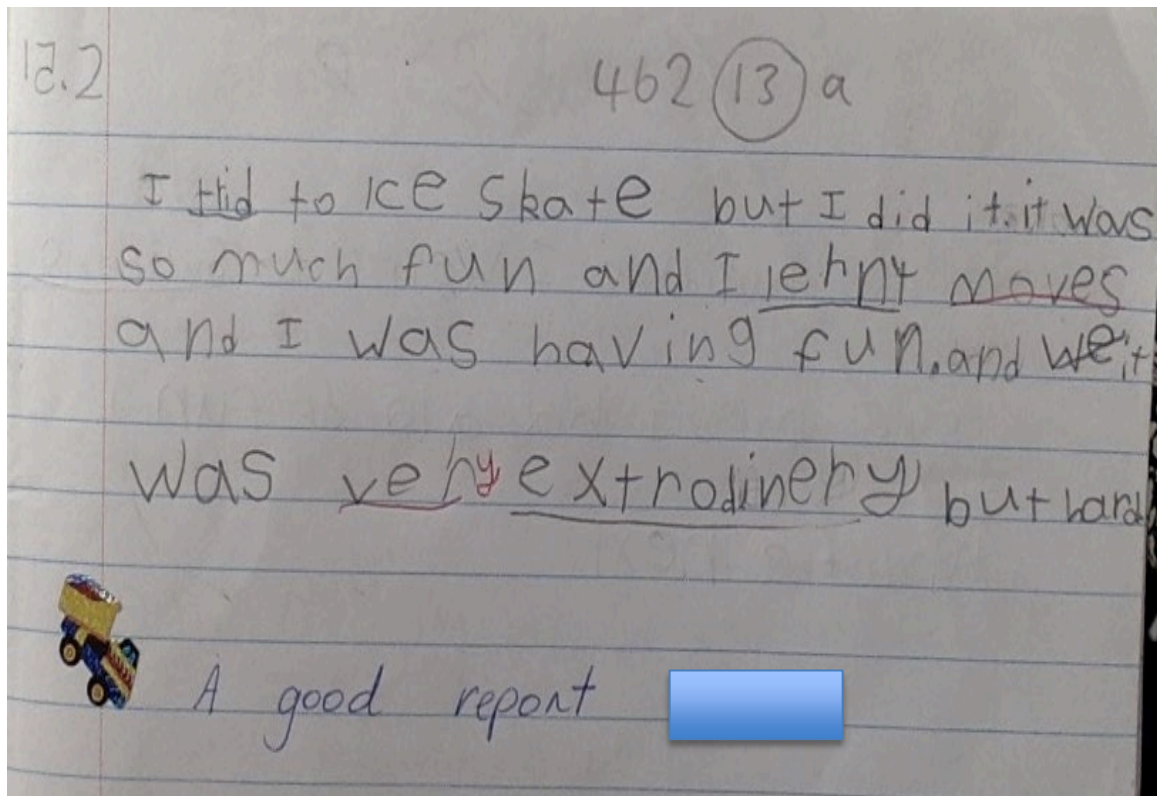 15.2 462 13 a
I trid to ice skate but I did it. it was
so much fun and I lernt moves
and I was having fun. and we it
was very extrodinery but hard
A good report